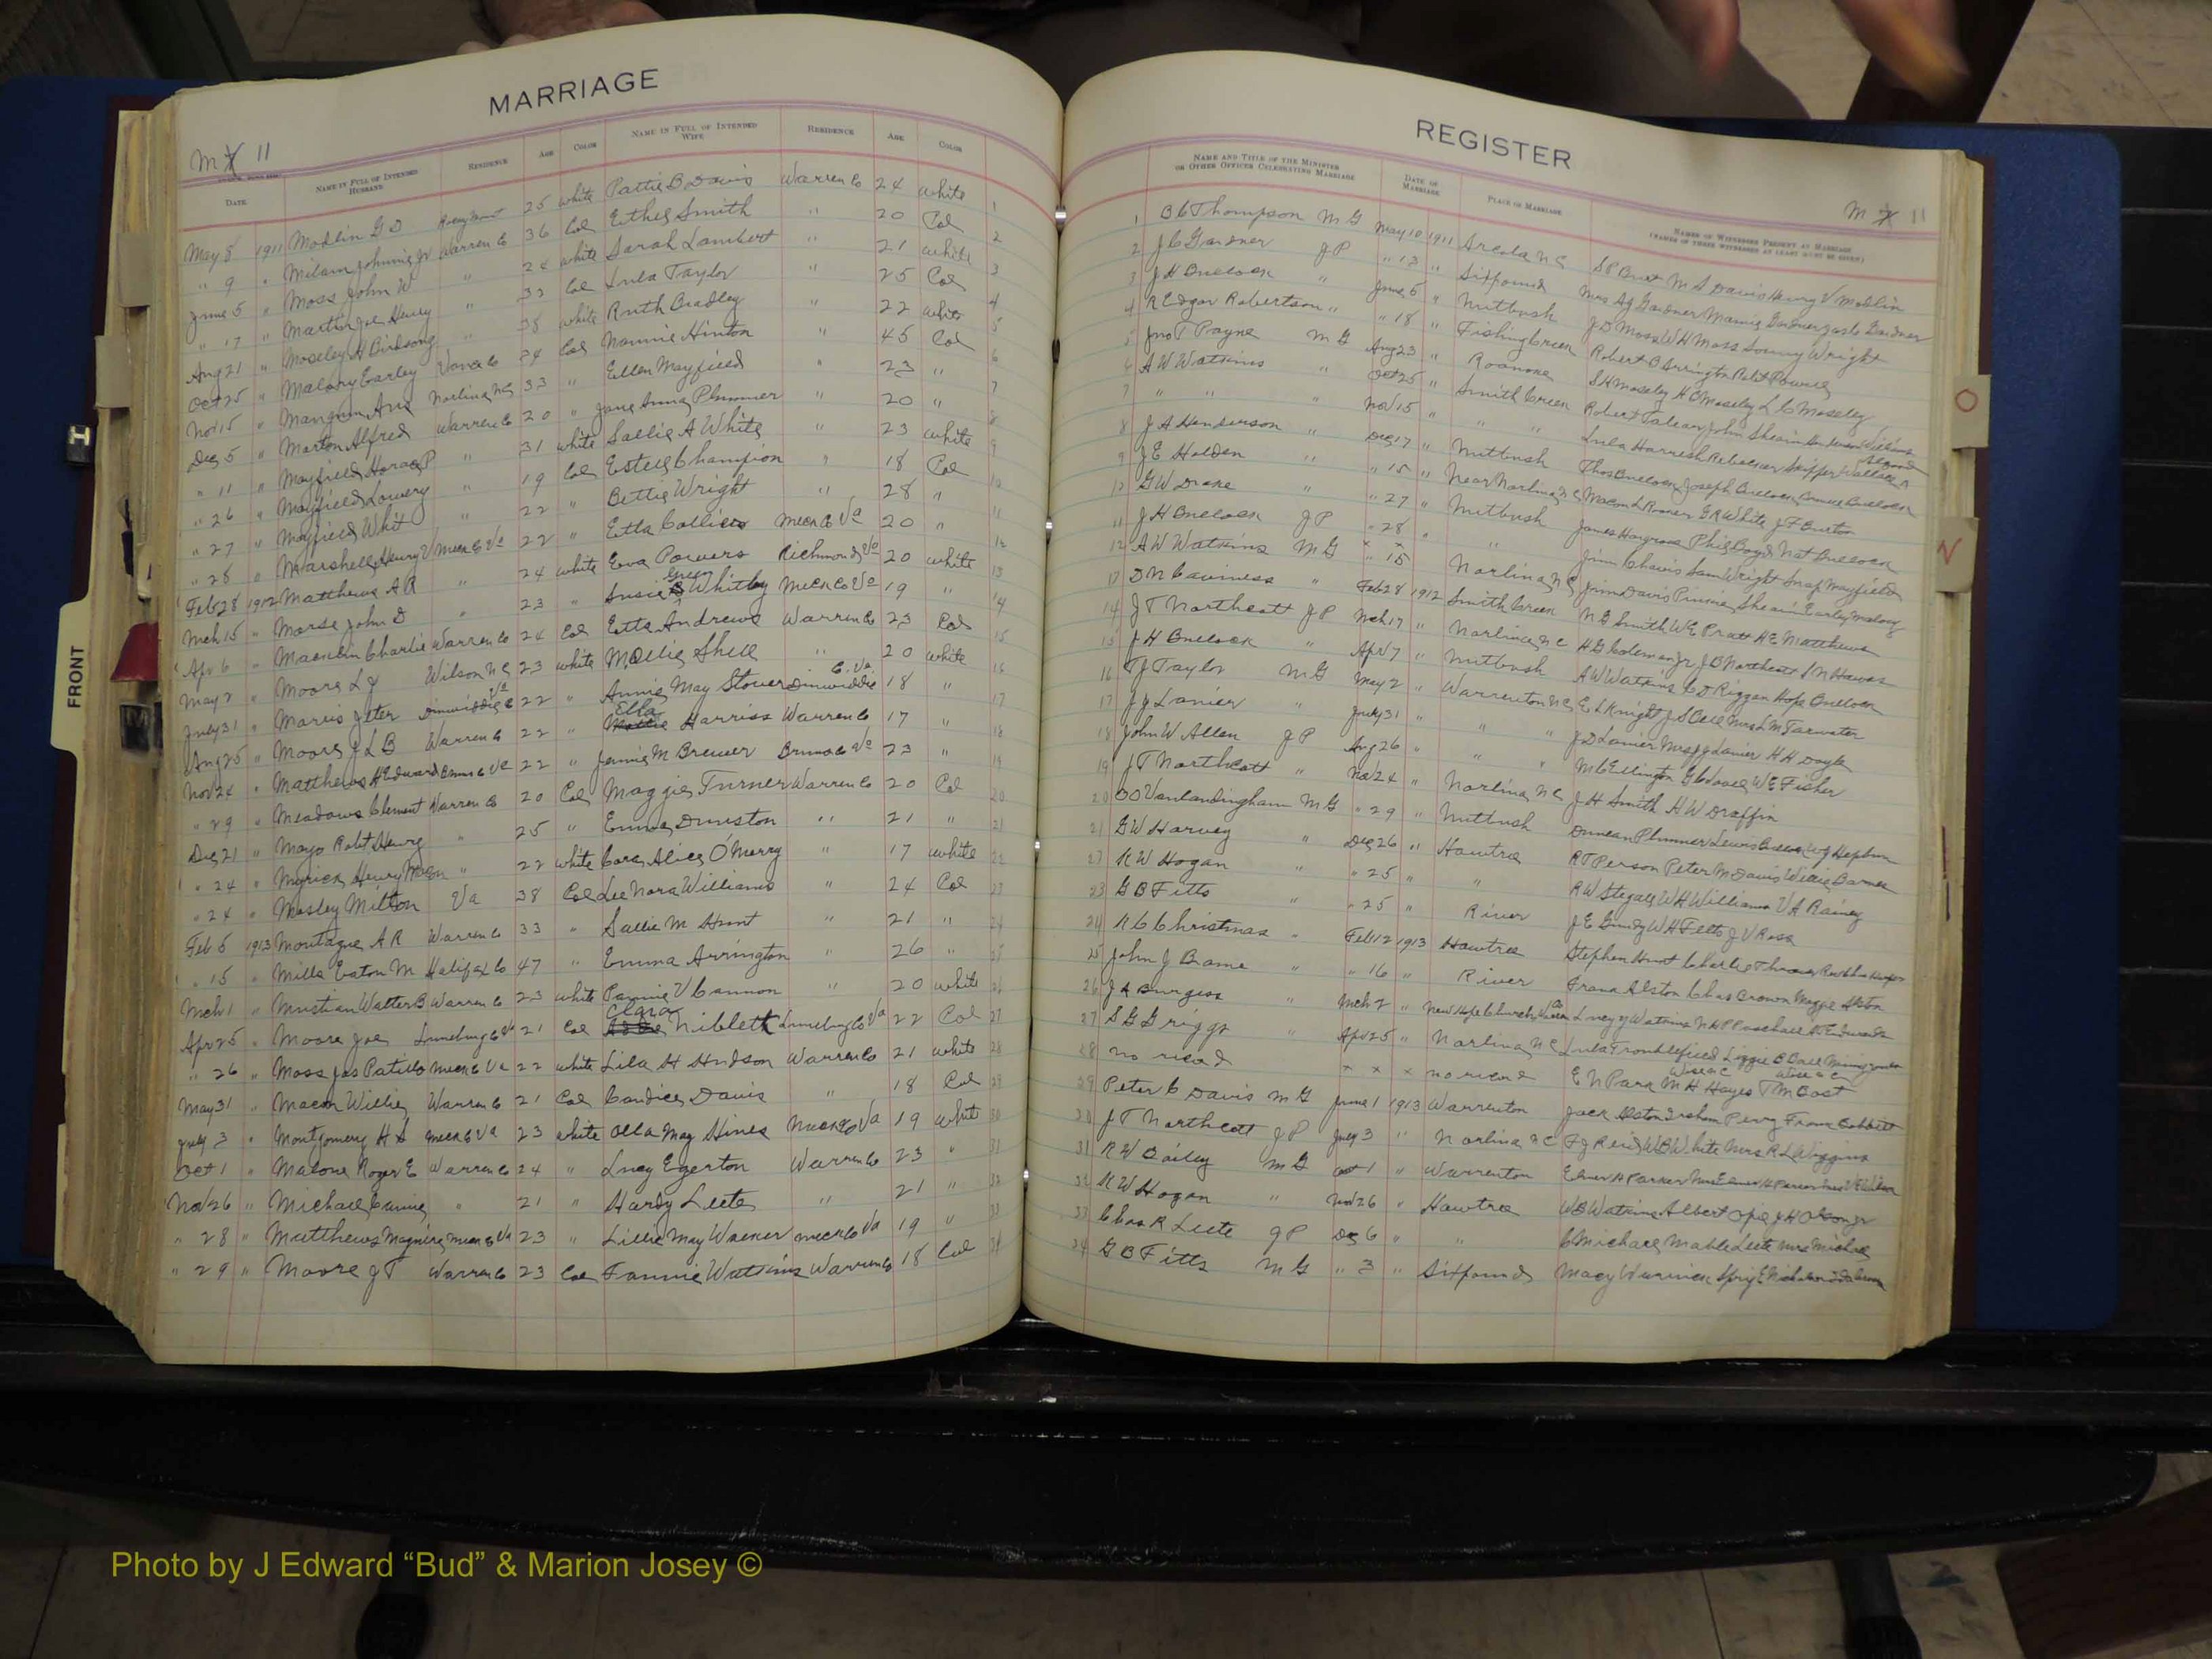 MARRIAGE
M 11
DATE NAME IN FULL OF INTENDED HUSBAND RESIDENCE AGE COLOR NAME IN FULL OF INTENDED WIFE RESIDENCE AGE COLOR
May 8 1911 Modlin G D Rocky Mount 25 white Pattie B Davis Warren Co 24 white 1
" 9 " Milam Johnnie Jr Warren Co 36 Col Ethel Smith " 20 Col 2
June 5 " Moss John W " 24 white Sarah Lambert " 21 white 3
" 17 " Martin Joe Henry " 32 Col Lula Taylor " 25 Col 4
Aug 21 " Moseley H Birdsong " 38 white Ruth Bradley " 22 white 5
Oct 25 " Malory Earley Vance Co 54 Col Nannie Hinton " 45 Col 6
Nov 15 " Mangum Norlina NC 33 " Ellen Mayfield " 23 " 7
Dec 5 " Morton Alfred Warren Co 20 " Jane Anna Plummer " 20 " 8
" 11 " Mayfield Horace P " 31 white Sallie A White " 23 white 9
" 26 " Mayfield Lowery " 19 Col Estell Champion " 18 Col 10
" 27 " Mayfield Whit " 22 " Bettie Wright " 28 " 11
" 28 " Marshall Henry V Meck Co Va 22 " Etta Collier Meck Co Va 20 " 12
Feb 28 1912 Matthews A R " 24 white Eva Powers Richmond Va 20 white 13
Mch 15 " Morse John D " 23 " Susie Green Whitby Meck Co Va 19 " 14
Apr 6 " Macklin Charlie Warren Co 24 Col Etta Andrews Warren Co 23 Col 15
May 2 " Moore L J Wilson NC 23 white Mollie Shell " 20 white 16
July 31 " Marris Jeter Dinwiddie C Va 22 " Annie May Stover Dinwiddie C. Va 18 " 17
Aug 25 " Moore J L B Warren Co 22 " Ella Harriss Warren Co 17 " 18
Nov 24 " Matthews H Edward Bruns Co Va 22 " Jennie M Brewer Bruns Co Va 23 " 19
" 29 " Meadows Clement Warren Co 20 Col Maggie Turner Warren Co 20 Col 20
Dec 21 " Mayo Robt Henry " 25 " Emma Dunston " 21 " 21
" 24 " Myrick Henry Macon " 22 white Cora Alice O'Merry " 17 white 22
" 24 " Mosley Milton Va 38 Col Lee Nora Williams " 24 Col 23
Feb 5 1913 Montague A R Warren Co 33 " Sallie M Hunt " 21 " 24
" 15 " Mills Eaton M Halifax Co 47 " Emma Arrington " 26 " 25
Mch 1 " Mustian Walter B Warren Co 23 white Pannie V Cannon " 20 white 26
Apr 25 " Moore Joe Lunenburg Co Va 21 Col Clara Niblett Lunenburg Co Va 22 Col 27
" 26 " Moss Jas Patillo Meck Co Va 22 white Lila H Hudson Warren Co 21 white 28
May 31 " Macon Willie Warren Co 21 Col Candice Davis " 18 Col 29
July 3 " Montgomery H L Meck Co Va 23 white Olla May Hines Meck Co Va 19 white 30
Oct 1 " Malone Roger E Warren Co 24 " Lucy Egerton Warren Co 23 " 31
Nov 26 " Michael Cannie " 21 " Hardy Leete " 21 " 32
" 28 " Matthews Magnire Meck Co Va 23 " Lillie May Walker Meck Co Va 19 " 33
" 29 " Moore J T Warren Co 23 Col Fannie Watkins Warren Co 18 Col 34
REGISTER
M 11
NAME AND TITLE OF THE MINISTER OR OTHER OFFICER CELEBRATING MARRIAGE DATE OF MARRIAGE PLACE OF MARRIAGE NAMES OF WITNESSES PRESENT AT MARRIAGE
1 B C Thompson M G May 10 1911 Arcola NC S P Burt M S Davis Henry V Modlin
2 J C Gardner J P " 13 " Sixpound Mrs A J Gardner Mamie Gardner Gardner
3 J H Bullock " June 5 " Nutbush J D Moss W H Moss Wright
4 R Edgar Robertson " " 18 " Fishing Creek Robert B Arrington
5 Jno T Payne M G Aug 23 " Roanoke S H Moseley H B Moseley L C Moseley
6 A W Watkins " Oct 25 " Smith Creek Robert
7 " " " Nov 15 " " " Lula Harris
8 J A Henderson " Dec 17 " Nutbush Thos Bullock Joseph Bullock Bullock
9 J E Holden " " 15 " Near Norlina NC Macon L Rooker G R White J F Burton
10 G W Drake " " 27 " Nutbush James Hargrove Phil Boyd Nat Bullock
11 J H Bullock J P " 28 " " Jim Chavis Sam Wright Snap Mayfield
12 A W Watkins M G " 15 Norlina NC Jim Davis
13 D N Caviness " Feb 28 1912 Smith Creek N G Smith W E Pratt H E Matthews
14 J T Northcott J P Mch 17 " Norlina NC H G Coleman Jr J B Northcott
15 J H Bullock " Apr 7 " Nutbush A W Watkins C D Riggan Hope Bullock
16 T J Taylor M G May 2 " Warrenton NC E L Knight J S Mrs L M Tarwater
17 J J Lanier " July 31 " " " J D Lanier Mrs J J Lanier H H Doyle
18 John W Allen J P Aug 26 " " " M C Ellington W E Fisher
19 J T Northcott " Nov 24 " Norlina NC J H Smith H W Draffin
20 O O Vanlandingham M G " 29 " Nutbush Duncan Plummer Lewis W J Hepburn
21 G W Harvey " Dec 26 " Hawtree R T Person Peter M Davis Willie Barner
22 K W Hogan " " 25 " " R W Stegall W H Williams V A Rainey
23 G B Fitts " " 25 " River J E Gundy W H Fitts J V Ross
24 K C Christmas " Feb 12 1913 Hawtree Stephen Hunt Charlie
25 John J Brame " " 16 " River Frank Alston Chas Brown Maggie Alston
26 J A Burgess " Mch 2 " New Hope Church Lucy J Watkins
27 S G Griggs " Apr 25 " Norlina NC Lula Troublefield Lizzie B Ball
28 No ricod x x x no ricord E N Park M H Hayes T M Bost
29 Peter C Davis M G June 1 1913 Warrenton Jack Alston Perry
30 J T Northcott J P July 3 " Norlina NC T J Reid W B White Mrs R L Wiggins
31 R W Bailey M G Oct 1 " Warrenton Elmer H Parker
32 K W Hogan " Nov 26 " Hawtree W B Watkins Albert
33 Chas R Leete J P Dec 6 " " C Michael Mable Leete Mrs Michael
34 G B Fitts M G " 3 " Sixpound Macy
FRONT
I
O
N
Photo by J Edward “Bud” & Marion Josey ©